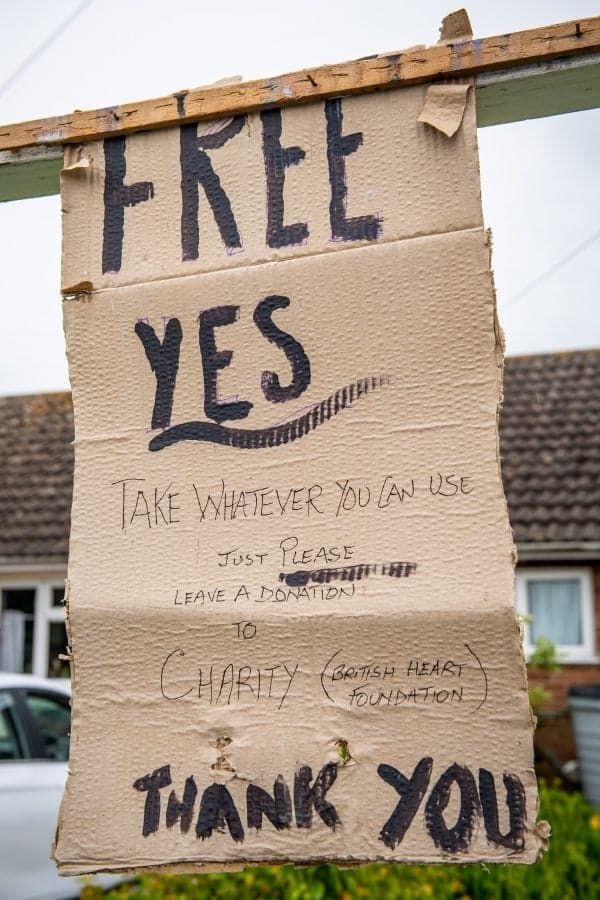 FREE
YES
TAKE WHATEVER YOU CAN USE
JUST PLEASE
LEAVE A DONATION
TO
CHARITY (BRITISH HEART
FOUNDATION)
THANK YOU